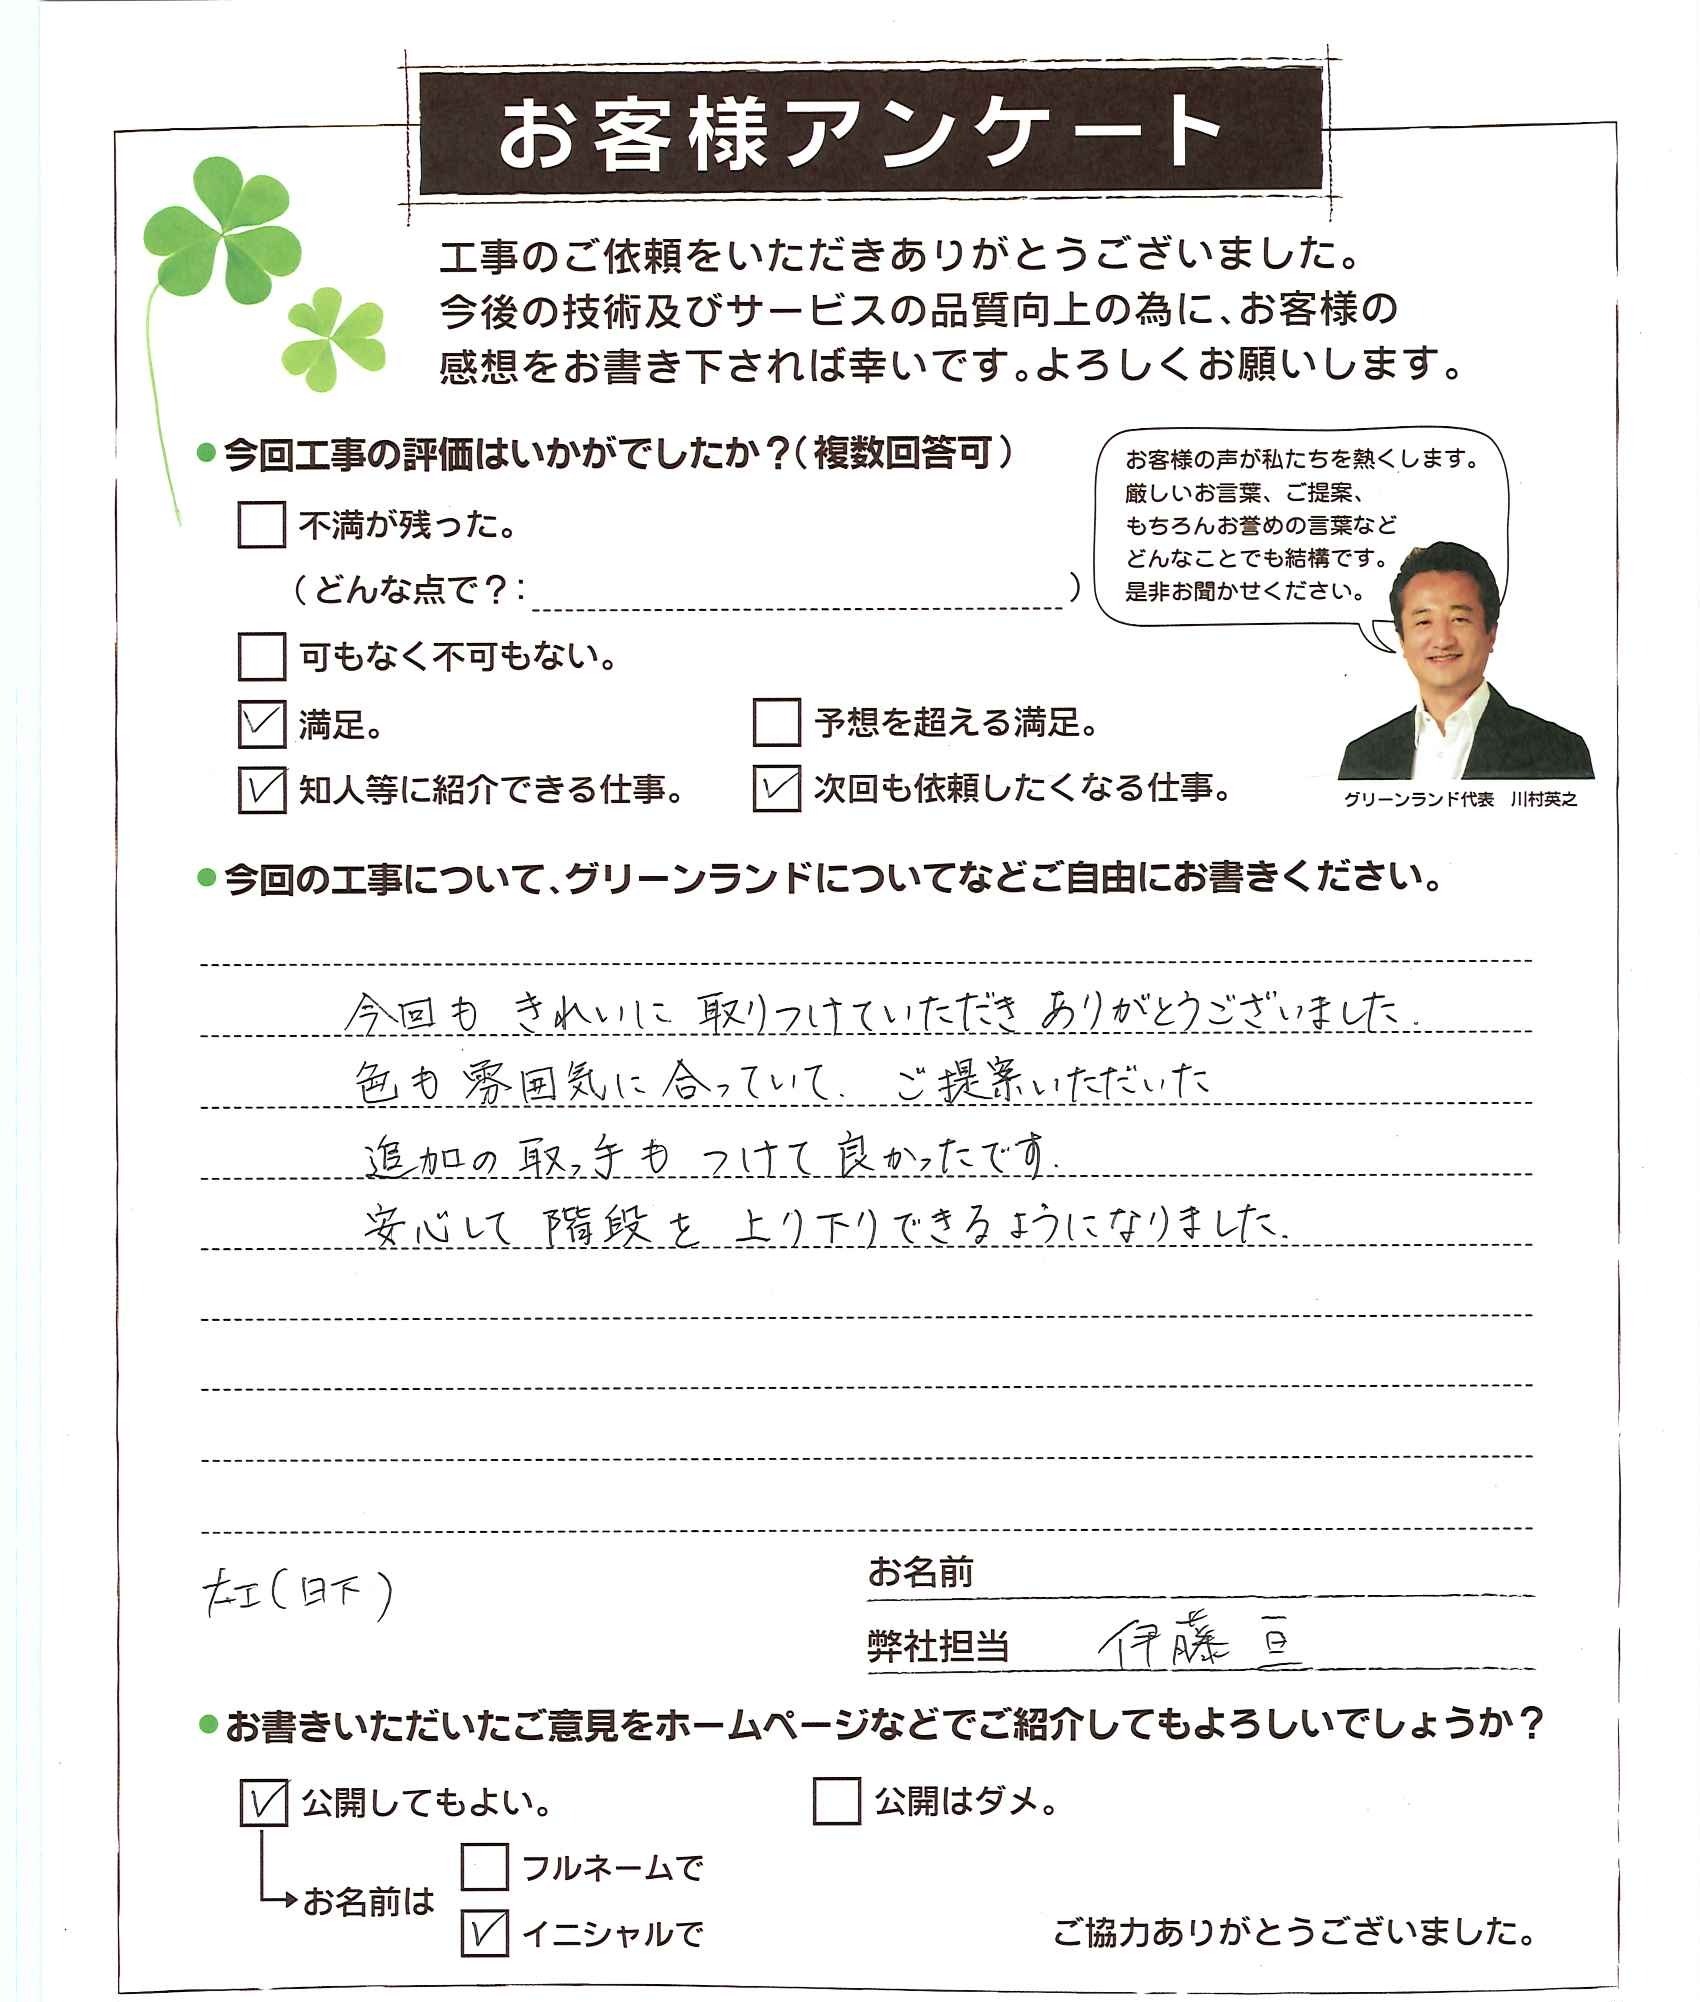 お客様アンケート
工事のご依頼をいただきありがとうございました。
今後の技術及びサービスの品質向上の為に、お客様の
感想をお書き下されば幸いです。よろしくお願いします。
●今回工事の評価はいかがでしたか？（複数回答可）
お客様の声が私たちを熱くします。
厳しいお言葉、ご提案、
もちろんお誉めの言葉など
どんなことでも結構です。
是非お聞かせください。
不満が残った。
（どんな点で？：　）
可もなく不可もない。
満足。
予想を超える満足。
知人等に紹介できる仕事。
次回も依頼したくなる仕事。
グリーンランド代表　川村英之
●今回の工事について、グリーンランドについてなどご自由にお書きください。
今回も きれいに 取りつけていただき ありがとうございました.
色も 雰囲気に 合っていて. ご提案いただいた
追加の 取っ手も つけて 良かったです.
安心して 階段を 上り下りできるようになりました.
お名前
大工(日下)
弊社担当　伊藤 亘
●お書きいただいたご意見をホームページなどでご紹介してもよろしいでしょうか？
公開してもよい。
公開はダメ。
お名前は
フルネームで
イニシャルで
ご協力ありがとうございました。